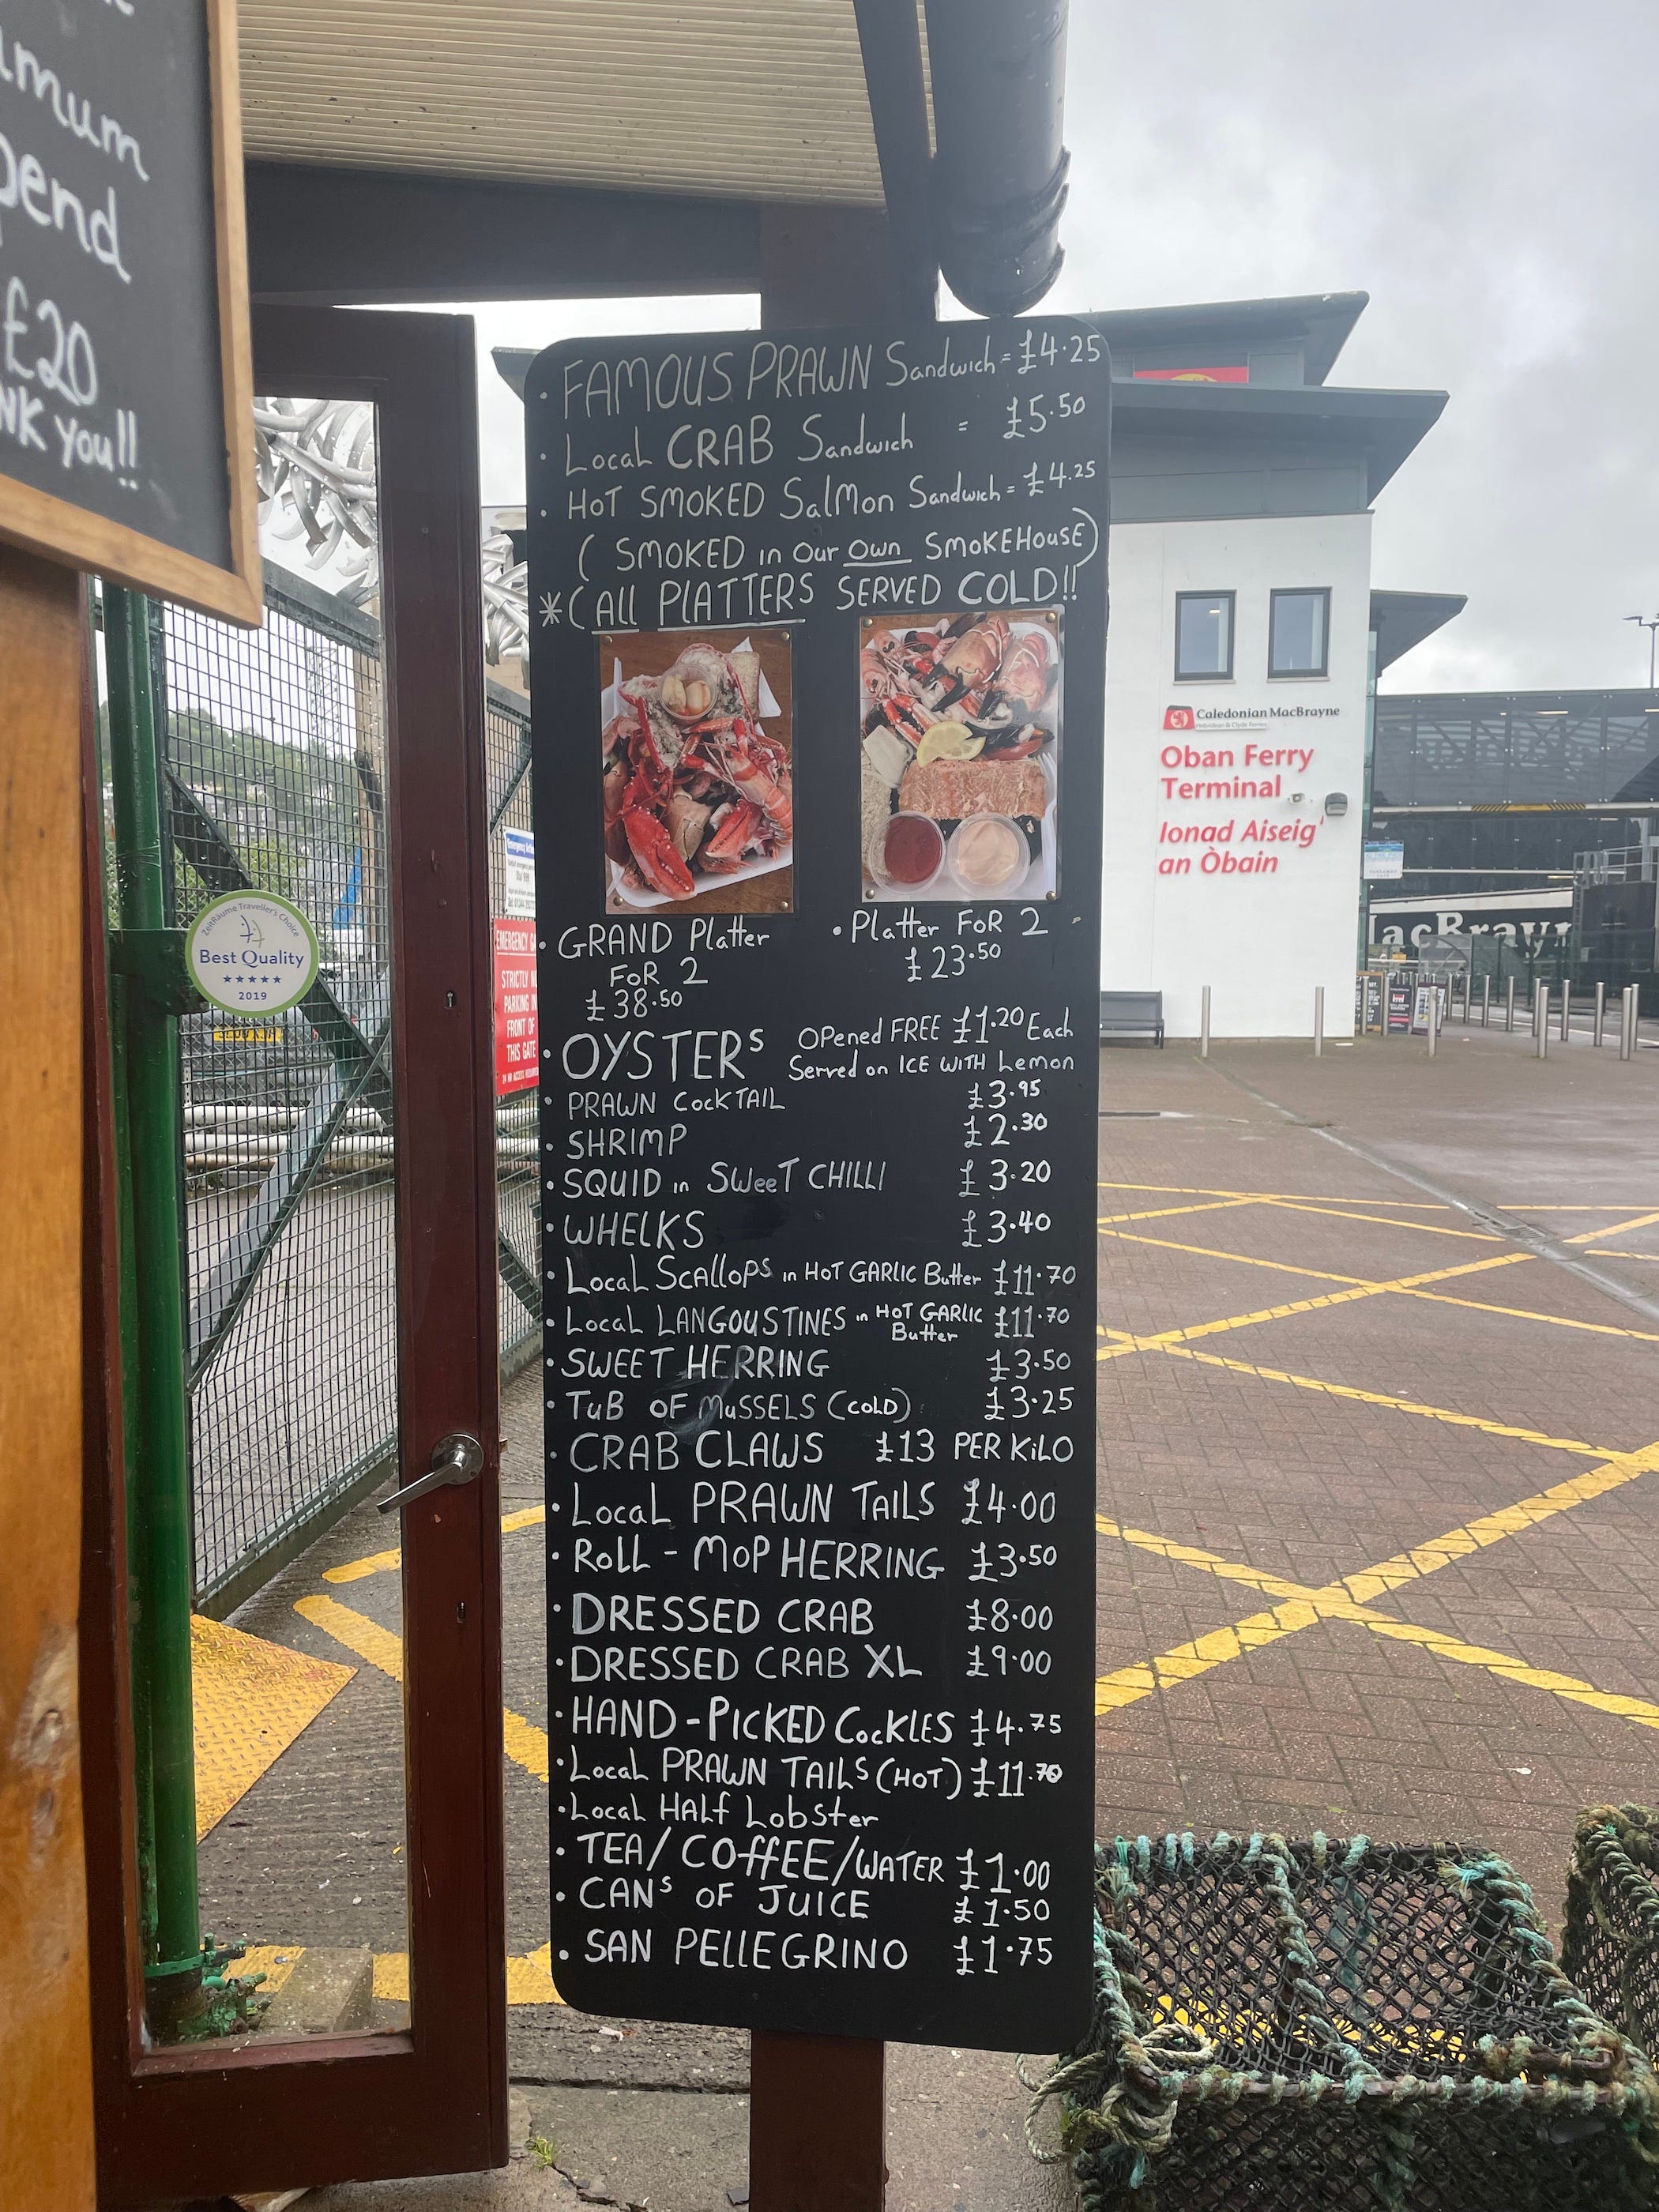 pend
£20
you!!
• FAMOUS PRAWN Sandwich = £4.25
• Local CRAB Sandwich = £5.50
• HOT SMOKED Salmon Sandwich = £4.25
( SMOKED in Our Own SMOKEHOUSE)
*( All PLATTERS SERVED COLD!!
• GRAND Platter
FOR 2
£38.50
• Platter FOR 2
£23.50
• OYSTERS OPened FREE £1.20 Each
Served on ICE WITH Lemon
• PRAWN COCKTAIL £3.95
• SHRIMP £2.30
• SQUID in SWeeT CHILLI £3.20
• WHELKS £3.40
• Local Scallops in HOT GARLIC Butter £11.70
• Local LANGOUSTINES in HOT GARLIC Butter £11.70
• SWEET HERRING £3.50
• TuB OF MuSSELS (COLD) £3.25
• CRAB CLAWS £13 PER KiLO
• Local PRAWN TAILS £4.00
• ROLL - MOP HERRING £3.50
• DRESSED CRAB £8.00
• DRESSED CRAB XL £9.00
• HAND-PICKED COCKLES £4.75
• Local PRAWN TAILS (HOT) £11.70
• Local HALF LObSter
• TEA/COffEE/WATER £1.00
• CANs OF JUICE £1.50
• SAN PELLEGRINO £1.75
ZeitRäume Traveller's Choice
Best Quality
★★★★★
2019
EMERGENCY
STRICTLY
PARKING IN
FRONT OF
THIS GATE
Caledonian MacBrayne
Hebridean & Clyde Ferries
Oban Ferry
Terminal
Ionad Aiseig
an Òbain